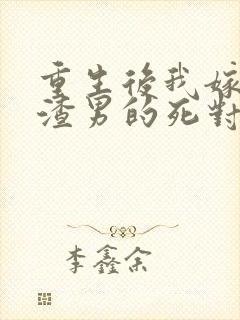 重生後我嫁
渣男的死對
李鑫余